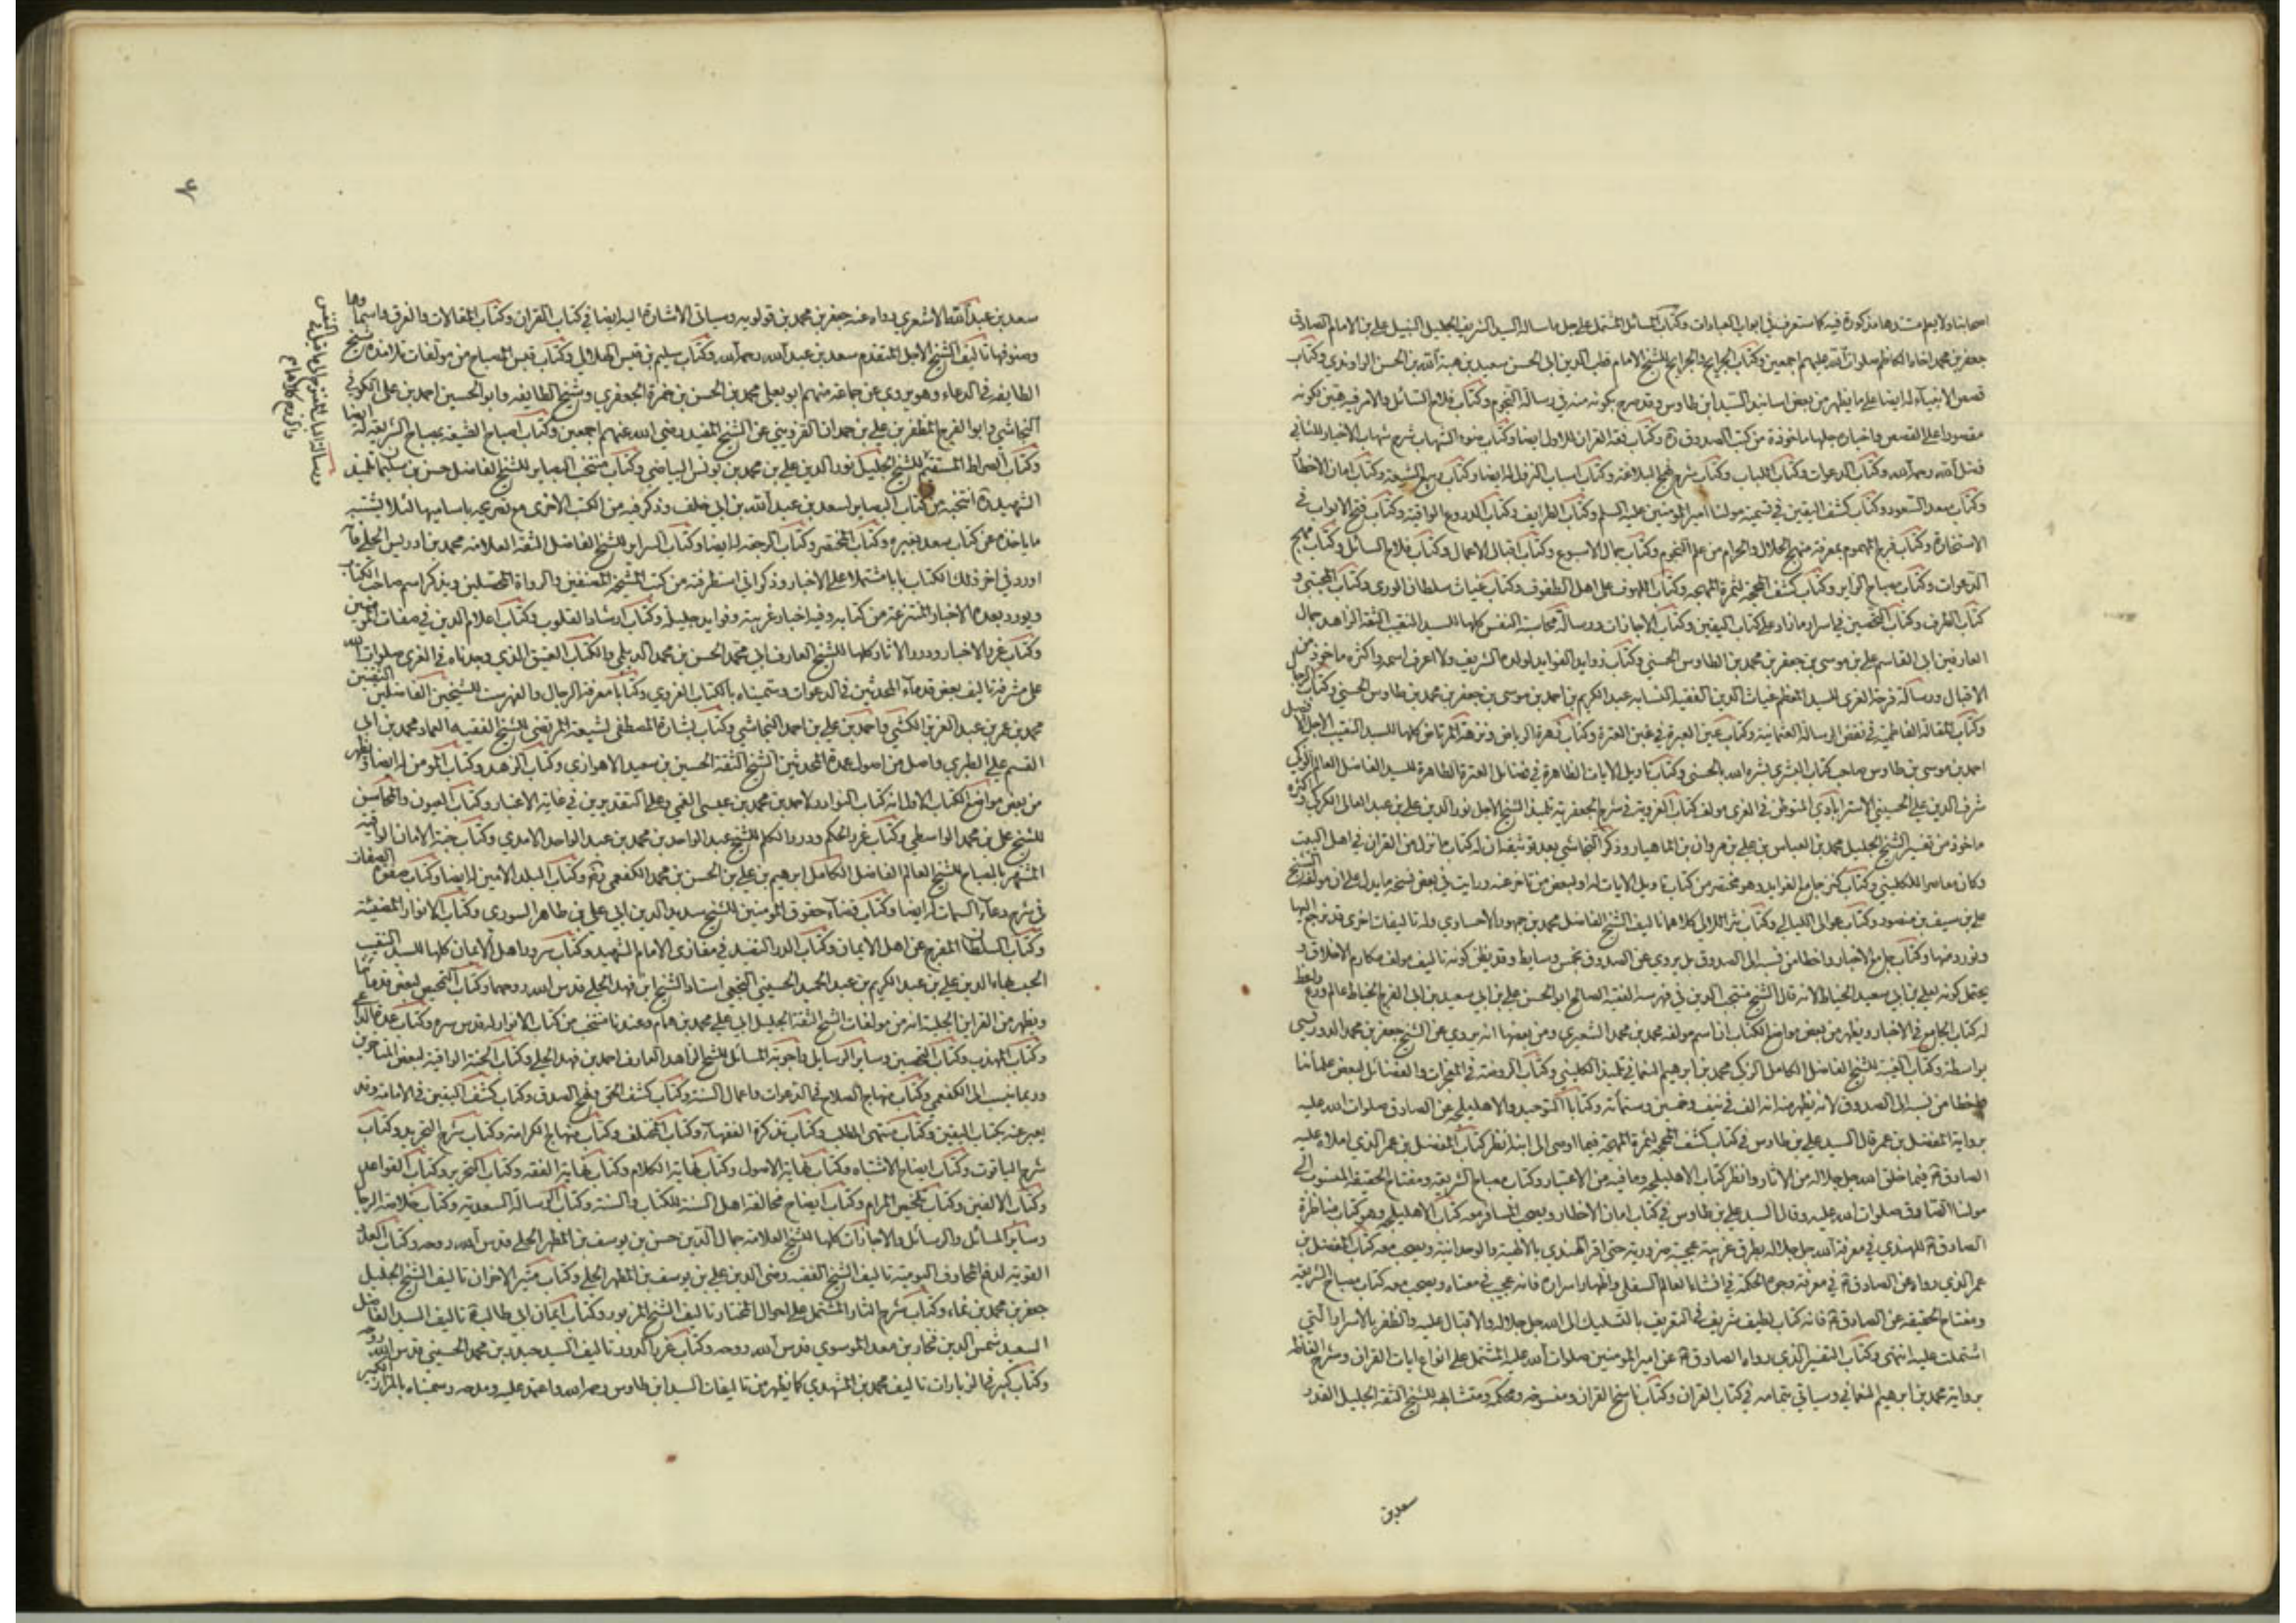 اصحابنا ولا يعلم سندها مذكورة فيه كما ستعرف في ابواب العبادات وكتاب المسائل المشتمل على جل ما سأله السيد الشريف الجليل النبيل علي بن الامام الصادق
جعفر بن محمد اخاه الكاظم صلوات الله عليهم اجمعين وكتاب الخرايج والجرايح للشيخ الامام قطب الدين ابي الحسن سعيد بن هبة الله بن الحسن الراوندي وكتاب
قصص الانبياء له ايضا على ما يظهر من بعض اسانيد السيد ابن طاوس وقد صرح بكونه منه في رسالة النجوم وكتاب فلاح السائل والامر فيه هين لكونه
مقصورا على القصص واخباره جلها ماخوذة من كتب الصدوق ره وكتاب فقه القران للاول ايضا وكتاب ضوء الشهاب شرح شهاب الاخبار للثاني
فضل الله رحمه الله وكتاب الدعوات وكتاب اللباب وكتاب شرح نهج البلاغة وكتاب اسباب النزول له ايضا وكتاب ربيع الشيعة وكتاب امان الاخطار
وكتاب سعد السعود وكتاب كشف اليقين في تسمية مولنا امير المؤمنين عليه السلم وكتاب الطرايف وكتاب الدروع الواقية وكتاب فتح الابواب في
الاستخارة وكتاب فرج المهموم بمعرفة منهج الحلال والحرام من علم النجوم وكتاب جمال الاسبوع وكتاب اقبال الاعمال وكتاب فلاح السائل وكتاب مهج
الدعوات وكتاب مصباح الزاير وكتاب كشف المحجة لثمرة المهجة وكتاب الملهوف على اهل الطفوف وكتاب غياث سلطان الورى وكتاب المجتنى و
كتاب الطرف وكتاب التحصين في اسرار ما زاد على كتاب اليقين وكتاب الاجازات ورسالة محاسبة النفس كلها للسيد النقيب الثقة الزاهد جمال
العارفين ابي القاسم علي بن موسى بن جعفر بن محمد بن الطاوس الحسني وكتاب زوايد الفوايد لولده الشريف ولا اعرف اسمه واكثره ماخوذ من
الاقبال ورسالة فرحة الغري للسيد المعظم غياث الدين الفقيه النسابه عبد الكريم بن احمد بن موسى بن جعفر بن محمد بن طاوس الحسني وكتاب الرجال
وكتاب المقالة الفاطمية في نقض الرسالة العثمانية وكتاب عين العبرة في غبن العترة وكتاب زهرة الرياض ونزهة المرتاض كلها للسيد النقيب الاجل الافضل
احمد بن موسى بن طاوس صاحب كتاب البشرى بشره الله بالحسنى وكتاب تاويل الايات الظاهرة في فضائل العترة الطاهرة للسيد الفاضل العالم الزكي
شرف الدين علي الحسيني الاسترابادي المتوطن في الغري مولف كتاب الغروية في شرح الجعفرية تلميذ الشيخ الاجل نور الدين علي بن عبد العالي الكركي واكثره
ماخوذ من تفسير الشيخ الجليل محمد بن العباس بن علي بن مروان بن الماهيار وذكر النجاشي بعد توثيقه ان له كتاب ما نزل من القران في اهل البيت
وكان معاصرا للكليني وكتاب كنز جامع الفوايد وهو مختصر من كتاب تاويل الايات له او لبعض من تاخر عنه ورايت في بعض نسخه ما يدل على ان مولفه الشيخ
علي بن سيف بن منصور وكتاب غوالي اللئالي وكتاب نثر اللالي كلاهما تاليف الشيخ الفاضل محمد بن جمهور الاحساوي وله تاليفات اخرى قد نرجع اليها
ونورد منها وكتاب جامع الاخبار واخطا من نسبه الى الصدوق بل يروي عن الصدوق بخمس وسايط وقد يظن كونه تاليف مولف مكارم الاخلاق و
يحتمل كونه لعلي بن ابي سعيد الخياط لانه قال الشيخ منتجب الدين في فهرسه الفقيه الصالح ابو الحسن علي بن ابي سعيد بن ابي الفرج الخياط عالم ورع واعظ
له كتاب الجامع في الاخبار ويظهر من بعض مواضع الكتاب ان اسم مولفه محمد بن محمد الشعيري ومن بعضها انه يروي عن الشيخ جعفر بن محمد الدوريستي
بواسطة وكتاب الغيبة للشيخ الفاضل الكامل الزكي محمد بن ابرهيم النعماني تلميذ الكليني وكتاب الروضة في المعجزات والفضائل لبعض علمائنا
واخطا من نسبه الى الصدوق لانه يظهر منه انه الف في نيف وخمسين وستمائة وكتابا التوحيد والاهليلجة عن الصادق صلوات الله عليه
برواية المفضل بن عمر قال السيد علي بن طاوس في كتاب كشف المحجة لثمرة المهجة فيما اوصى الى ابنه انظر كتاب المفضل بن عمر الذي املاه عليه
الصادق ع فيما خلق الله جل جلاله من الاثار وانظر كتاب الاهليلجة وما فيه من الاعتبار وكتاب مصباح الشريعة ومفتاح الحقيقة المنسوب الى
مولنا الصادق صلوات الله عليه وقال السيد علي بن طاوس في كتاب امان الاخطار ويصحب المسافر معه كتاب الاهليلجة وهو كتاب مناظرة
الصادق ع للهندي في معرفة الله جل جلاله بطرق غريبة عجيبة ضرورية حتى اقر الهندي بالالهية والوحدانية ويصحب معه كتاب المفضل بن
عمر الذي رواه عن الصادق ع في معرفة وجوه الحكمة في انشاء العالم السفلي واظهار اسراره فانه عجيب في معناه ويصحب معه كتاب مصباح الشريعة
ومفتاح الحقيقة عن الصادق ع فانه كتاب لطيف شريف في التعريف بالتسليك الى الله جل جلاله والاقبال عليه والظفر بالاسرار التي
اشتملت عليه انتهى وكتاب التفسير الذي رواه الصادق ع عن امير المؤمنين صلوات الله عليه المشتمل على انواع ايات القران وشرح الفاظه
برواية محمد بن ابرهيم النعماني وسياتي بتمامه في كتاب القران وكتاب ناسخ القران ومنسوخه ومحكمه ومتشابهه للشيخ الثقة الجليل القدر
سعد بن
سعد بن عبد الله الاشعري رواه عنه جعفر بن محمد بن قولويه وسياتي الاشارة اليه ايضا في كتاب القران وكتاب المقالات والفرق واسمائها
وصنوفها تاليف الشيخ الاجل المتقدم سعد بن عبد الله رحمه الله وكتاب سليم بن قيس الهلالي وكتاب قبس المصباح من مولفات تلامذة شيخ
الطايفه في الدعاء وهو يروي عن جماعة منهم ابو يعلى محمد بن الحسن بن حمزة الجعفري وشيخ الطايفه وابو الحسين احمد بن علي الكوفي
النجاشي وابو الفرج المظفر بن علي بن حمدان القزويني عن الشيخ المفيد رضي الله عنهم اجمعين وكتاب اصباح الشيعة بمصباح الشريعة له ايضا
وكتاب الصراط المستقيم للشيخ الجليل نور الدين علي بن محمد بن يونس البياضي وكتاب منتخب البصاير للشيخ الفاضل حسن بن سليمان تلميذ
الشهيد ره انتخبه من كتاب البصاير لسعد بن عبد الله بن ابي خلف وذكر فيه من الكتب الاخرى مع تصريحه باساميها لئلا يشتبه
ما ياخذه عن كتاب سعد بغيره وكتاب المحتضر وكتاب الرجعة له ايضا وكتاب السراير للشيخ الفاضل الثقة العلامة محمد بن ادريس الحلي وقد
اورد في اخر ذلك الكتاب بابا مشتملا على الاخبار وذكر اني استطرفته من كتب المشيخة المصنفين والرواة المحصلين ويذكر اسم صاحب الكتاب
ويورد بعده الاخبار المنتزعة من كتابه وفيه اخبار غريبة وفوايد جليلة وكتاب ارشاد القلوب وكتاب اعلام الدين في صفات المؤمنين
وكتاب غرر الاخبار ودرر الاثار كلها للشيخ العارف ابي محمد الحسن بن محمد الديلمي والكتاب العتيق الذي وجدناه في الغري صلوات الله
على مشرفه تاليف بعض قدماء المحدثين في الدعوات وسميناه بالكتاب الغروي وكتابا معرفة الرجال والفهرست للشيخين الفاضلين الثقتين
محمد بن عمر بن عبد العزيز الكشي واحمد بن علي بن احمد النجاشي وكتاب بشارة المصطفى لشيعة المرتضى للشيخ الفقيه العماد محمد بن ابي
القسم علي الطبري واصل من اصول عمدة المحدثين الشيخ الثقة الحسين بن سعيد الاهوازي وكتاب الزهد وكتاب المؤمن له ايضا ويظهر
من بعض مواضع الكتاب الاول انه كتاب النوادر لاحمد بن محمد بن عيسى القمي وعلى التقديرين في غاية الاعتبار وكتاب العيون والمحاسن
للشيخ علي بن محمد الواسطي وكتاب غرر الحكم ودرر الكلم للشيخ عبد الواحد بن محمد بن عبد الواحد الامدي وكتاب جنة الامان الواقية
المشتهر بالمصباح للشيخ العالم الفاضل الكامل ابرهيم بن علي بن الحسن بن محمد الكفعمي ره وكتاب البلد الامين له ايضا وكتاب صفوة الصفات
في شرح دعاء السمات له ايضا وكتاب قضاء حقوق المؤمنين للشيخ سديد الدين ابي علي بن طاهر السوري وكتاب الانوار المضيئة
وكتاب السلطان المفرج عن اهل الايمان وكتاب الدر النضيد في مغازي الامام الشهيد وكتاب سرور اهل الايمان كلها للسيد النقيب
الحسيب بهاء الدين علي بن عبد الكريم بن عبد الحميد الحسيني النجفي استاد الشيخ ابن فهد الحلي قدس الله روحهما وكتاب التمحيص لبعض قدمائنا
ويظهر من القراين الجلية انه من مولفات الشيخ الثقة الجليل ابي علي محمد بن همام وعندنا منتخب من كتاب الانوار له قدس سره وكتاب عدة الداعي
وكتاب المهذب وكتاب التحصين وساير الرسايل واجوبة المسائل للشيخ الزاهد العارف احمد بن فهد الحلي وكتاب الجنة الواقية لبعض المتاخرين
وربما ينسب الى الكفعمي وكتاب منهاج الصلاح في الدعوات واعمال السنة وكتاب كشف الحق ونهج الصدق وكتاب كشف اليقين في الامامة وقد
يعبر عنه بكتاب اليقين وكتاب منتهى المطلب وكتاب تذكرة الفقهاء وكتاب المختلف وكتاب منهاج الكرامة وكتاب شرح التجريد وكتاب
شرح الياقوت وكتاب ايضاح الاشتباه وكتاب نهاية الاصول وكتاب نهاية الكلام وكتاب نهاية الفقه وكتاب التحرير وكتاب القواعد
وكتاب الالفين وكتاب تلخيص المرام وكتاب ايضاح مخالفة اهل السنة للكتاب والسنة وكتاب الرسالة السعدية وكتاب خلاصة الرجال
وساير المسائل والرسائل والاجازات كلها للشيخ العلامة جمال الدين حسن بن يوسف بن المطهر الحلي قدس الله روحه وكتاب العدد
القوية لدفع المخاوف اليومية تاليف الشيخ الفقيه رضي الدين علي بن يوسف بن المطهر الحلي وكتاب مثير الاحزان تاليف الشيخ الجليل
جعفر بن محمد بن نماء وكتاب شرح الثار المشتمل على احوال المختار تاليف الشيخ المزبور وكتاب ايمان ابي طالب ع تاليف السيد الفاضل
السعيد شمس الدين فخار بن معد الموسوي قدس الله روحه وكتاب غرر الدرر تاليف السيد حيدر بن محمد الحسيني قدس الله روحه
وكتاب كبير في الزيارات تاليف محمد بن المشهدي كما يظهر من تاليفات السيد ابن طاوس رحمه الله واعتمد عليه ومدحه وسميناه بالمزار الكبير